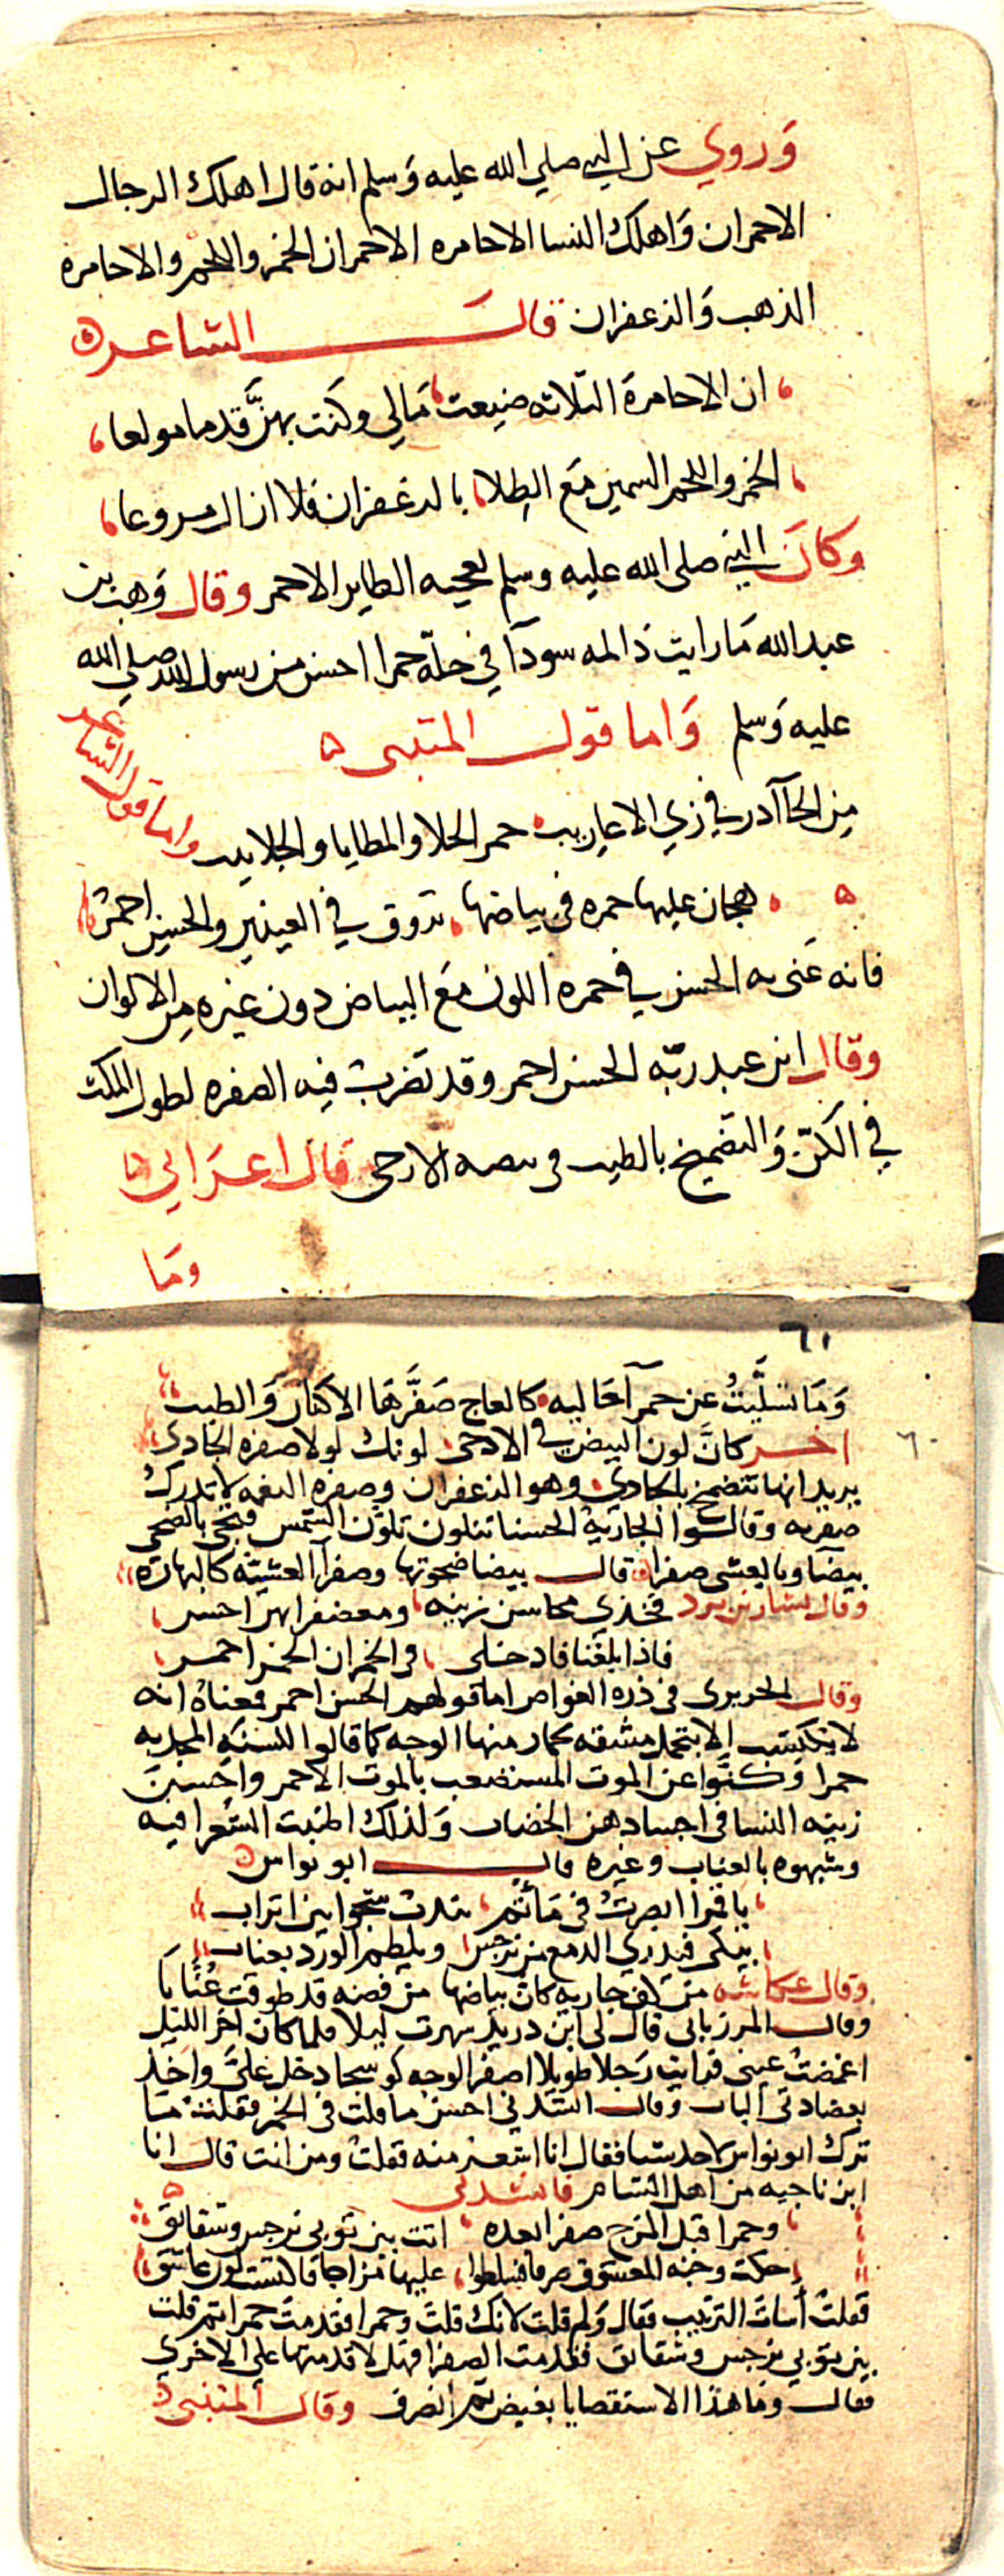 وروي عن النبي صلي الله عليه وسلم انه قال اهلك الرجال
الاحمران واهلك النسا الاحامره الاحمران الخمر واللحم والاحامره
الذهب والزعفران قال الشاعر
ان الاحامرة الثلاثه ضيعت مالي وكنت بهنّ قدما مولعا
الخمر واللحم السمين مع الطلا بالزعفران فلا ازال مروعا
وكان النبي صلى الله عليه وسلم يعجبه الطاير الاحمر وقال وهب بن
عبد الله ما رايت ذا لمه سودآ في حلّة حمرا احسن من رسول الله صلى الله
عليه وسلم واما قول المتنبى
من الجآآدر في زي الاعاريب حمر الحلا والمطايا والجلابيب واما قول الشاعر
هجان عليها حمره فى بياضها تروق في العينين والحسن احمر
فانه عنى به الحسن في حمره اللون مع البياض دون غيره من الالوان
وقال ابن عبد ربّه الحسن احمر وقد تضرب فيه الصفره لطول المكث
في الكنّ والتضميخ بالطيب الادحى قال اعرابي
وما
٦١
وما تسلّيتُ عن حمرآ حاليه كالعاج صَفَّرها الاكنان والطيب
٦٠
اخر كانّ لون البيض في الادحى لونك لولا صفرة الجادى
يريد انها تتضمخ بالجادي وهو الزعفران وصفره النعمه لا تدرك
وقالوا الجاريه الحسنا تتلون تلوّن الشمس فهي بالضحى
بيضآ وبالعشى صفرا قال بيضا ضحوتها وصفرآ العشيّه كالبهاره
وقال بشار بن برد فخذي محاسن زينه ومعصفرا هن احسن
فاذا بلغنا فادخلى فى الخمر ان الحسن احمر
وقال الحريرى فى دره الغواص اما قولهم الحسن احمر فمعناه انه
لا يكتسب الا بتحمل مشقه يحمار منها الوجه كما قالوا للسنة المجدبه
حمرا وكنّوا عن الموت المستصعب بالموت الاحمر واحسن
زينه النسا فى اجسادهن الخضاب ولذلك اطنبت الشعرا فيه
وشبهوه بالعناب وغيره قال ابو نواس
يا قمرا ابصرتُ فى مأتم يندب شجوا بين اتراب
يبكى فيذري الدمع من نرجس ويلطم الورد بعناب
وقال عكاشه من كف جاريه كان بياضها من فضه قد طوقت عُنّابا
وقال المرزبانى قال لى ابن دريد سهرت ليلا فلما كان اخر الليل
اغمضتُ عينى فرايت رجلا طويلا اصفر الوجه كوسجا دخل عليّ واخذ
بعضادتى الباب وقال انشدني احسن ما قلت فى الخمر فقلت ما
ترك ابو نواس لاحد شيا فقال انا اشعر منه فقلتُ ومن انت قال انا
ابن ناجيه من اهل الشام فانشدني
وحمرا قبل المزج صفرا بعده اتت بين ثوبي نرجس وشقائق
حكت وجنه المعشوق صرفا فسلطوا عليها مزاجا فاكتست لون عاشق
فقلتُ أسات الترتيب فقال ولم قلت لانك قلت وحمرا فقدمت حمرا ثم قلت
بين ثوبي نرجس وشقائق فقدمت الصفرا فهلا قدمتها علي الاخري
فقال وما هذا الاستقصا يا بغيض ثم انصرف وقال المتنبى